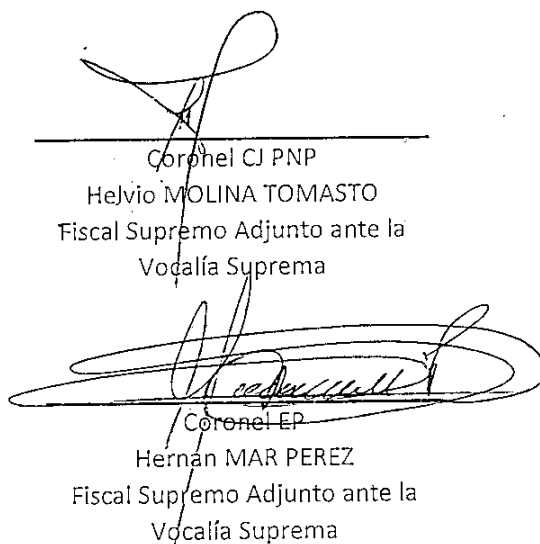 Coronel CJ PNP
Helvio MOLINA TOMASTO
Fiscal Supremo Adjunto ante la
Vocalía Suprema
Coronel EP
Hernán MAR PEREZ
Fiscal Supremo Adjunto ante la
Vocalía Suprema